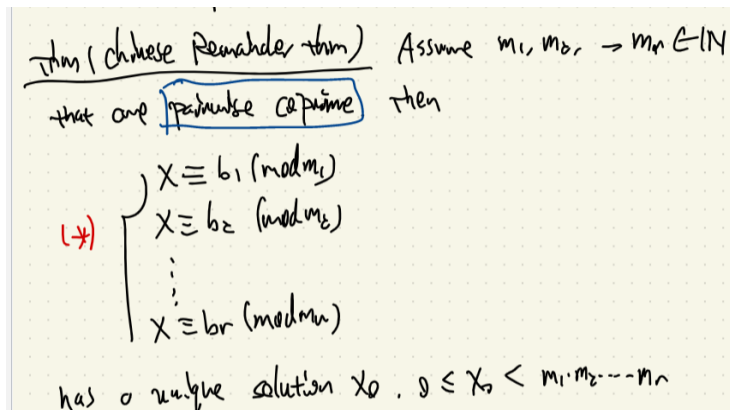 Thm (Chinese Remainder thm) Assume m₁, m₂, → mₙ ∈ ℕ
that are pairwise coprime Then
(*) { X ≡ b₁ (mod m₁)
X ≡ b₂ (mod m₂)
⋮
X ≡ br (mod mₙ)
has a unique solution x₀. 0 ≤ x₀ < m₁·m₂·---mₙ